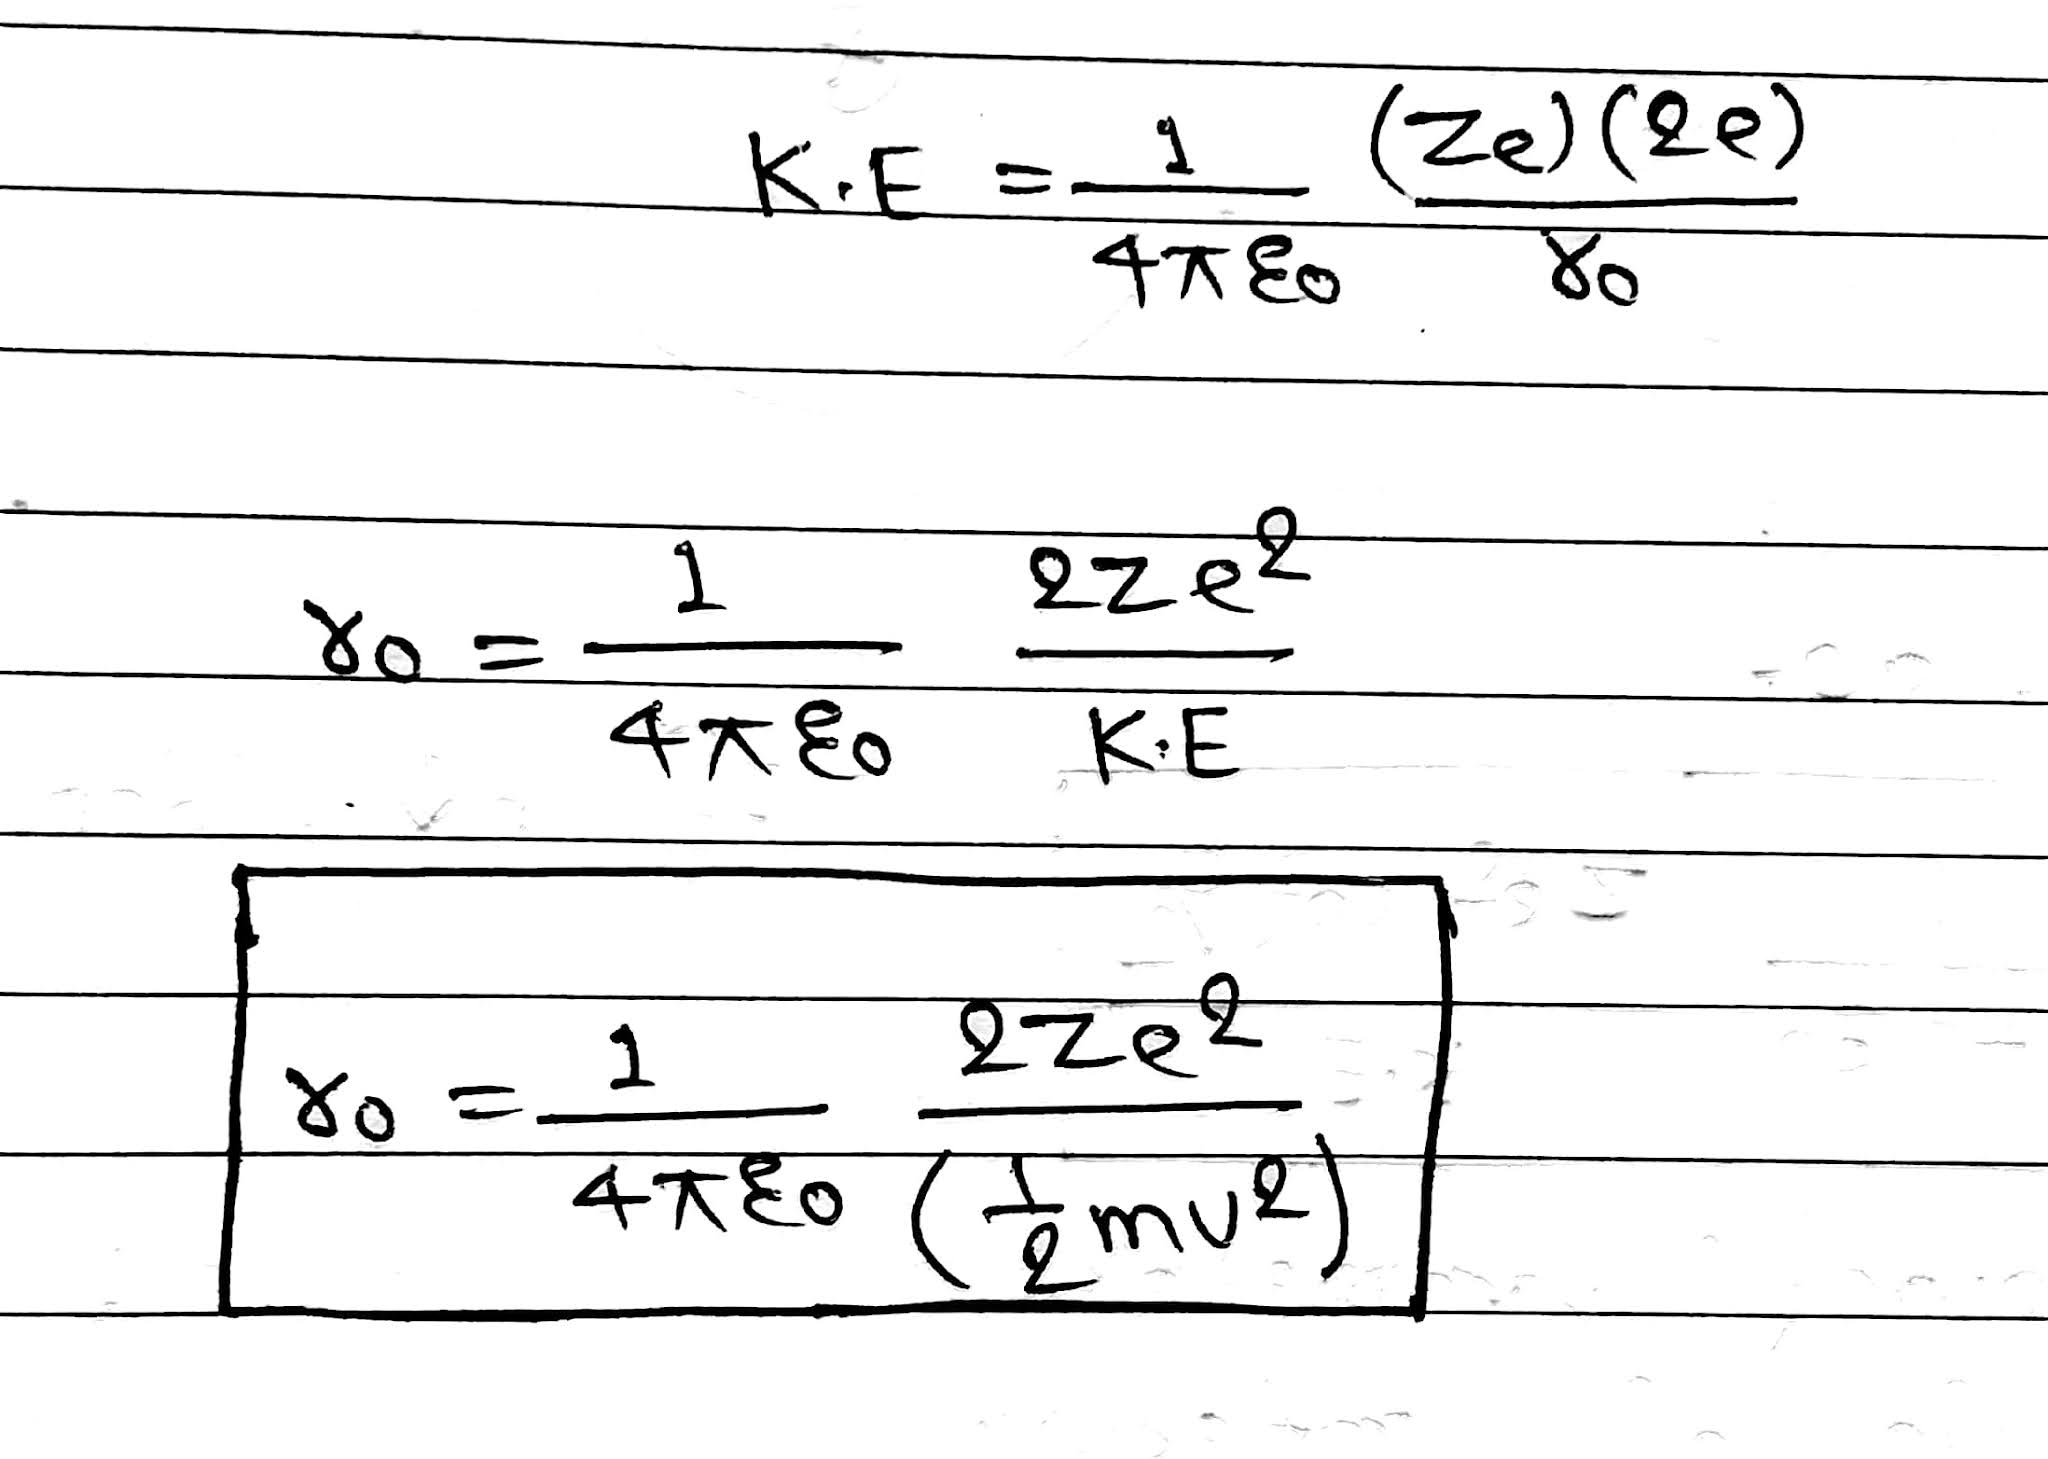 K.E = 1/4πε₀ (Ze)(2e)/r₀
r₀ = 1/4πε₀ 2Ze²/K.E
r₀ = 1/4πε₀ 2Ze²/(1/2 mv²)